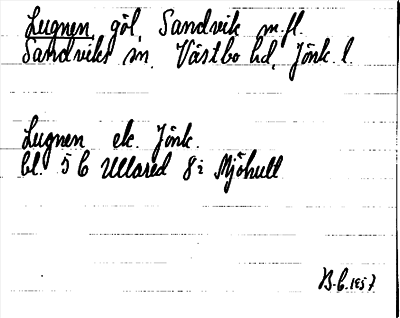 Lugnen, göl, Sandvik m.fl.
Sandviks sn, Västbo hd, Jönk. l.
Lugnen ek. Jönk.
bl. 5 C Ullared 8i Mjöhult
B-C.1957